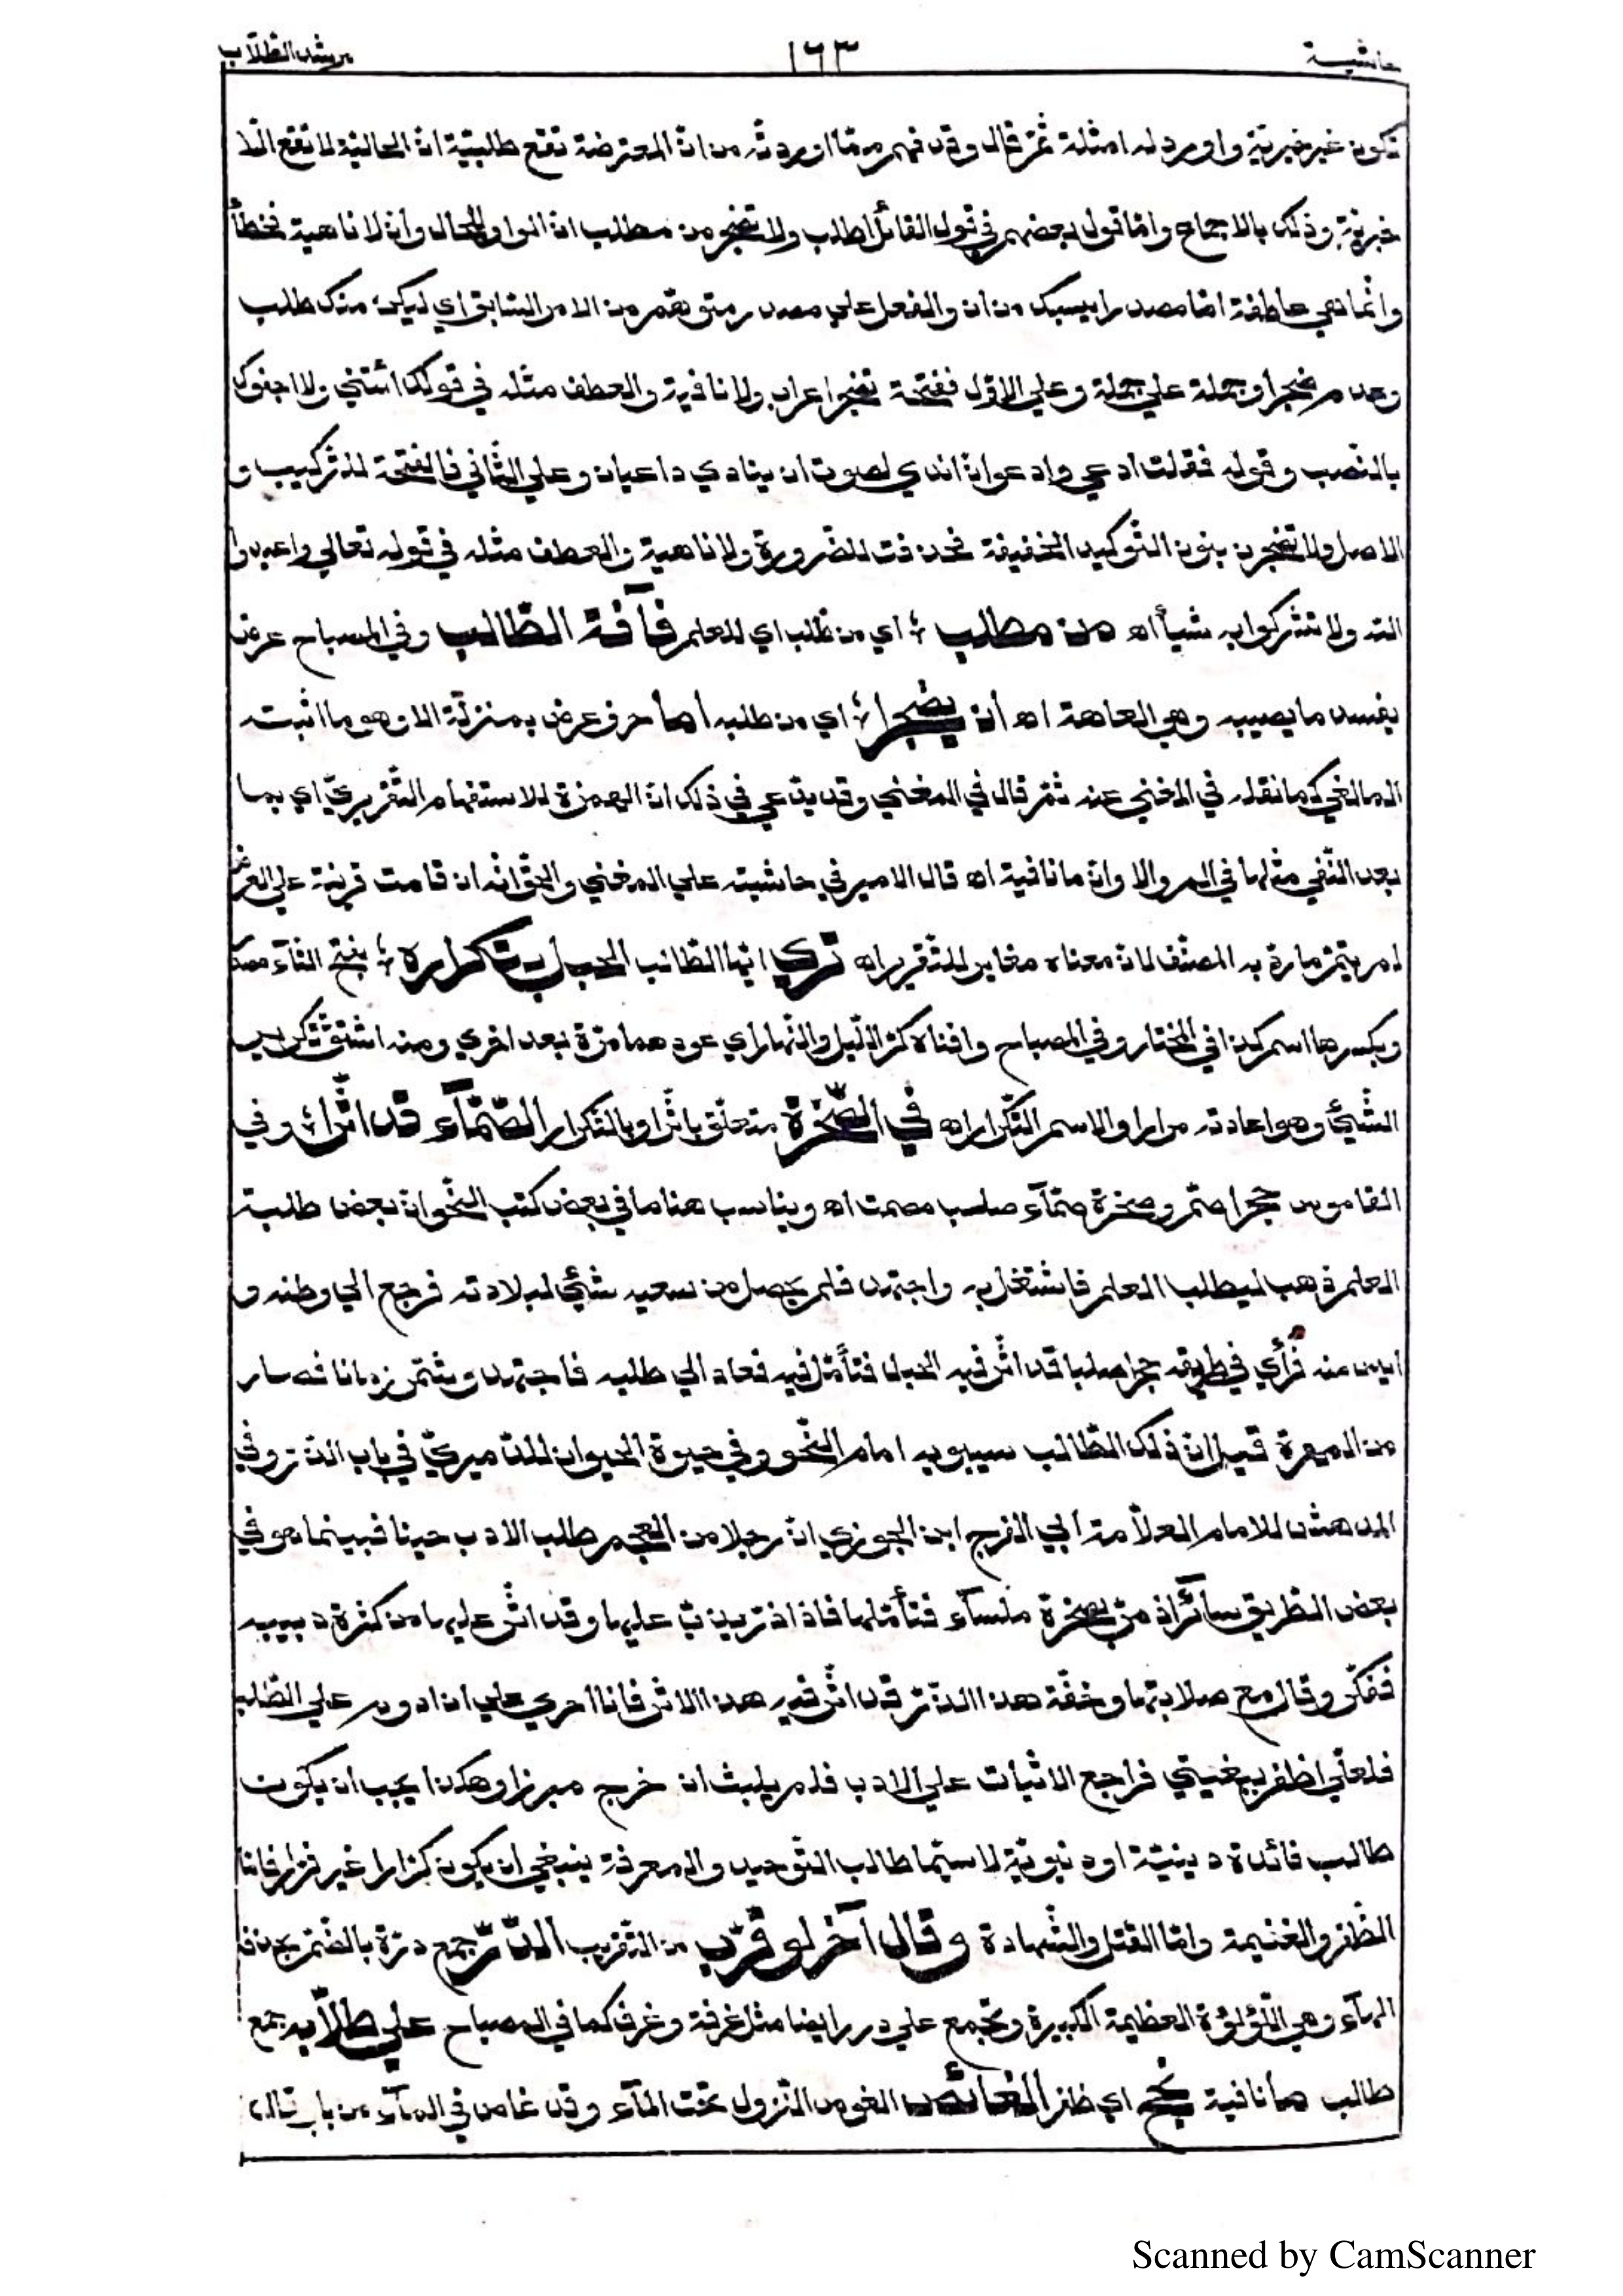 حاشية ١٦٣ مرشد الطلاّب
تكون غير خبريّة واورد له امثلة ثمّ قال وقد فهم ممّا اوردتّه من انّ المعترضة تقع طلبيّة انّ الحاليّة لا تقع الّا
خبريّة وذلك بالاجماع وامّا قول بعضهم في قول القائل اطلب ولا تضجر من مطلب انّ الواو للحال وان لا ناهية فخطأ
وانّما هي عاطفة امّا مصدرا يسبك من ان والفعل علي مصدر متوهّم من الامر السّابق اي ليكن منك طلب
وعدم ضجر او جملة علي جملة وعلي الاوّل ففتحة تضجر اعراب ولا نافية والعطف مثله في قولك ائتني ولا اجفوك
بالنّصب وقوله فقلت ادعي وادعو انّ اندي لصوت ان ينادي داعيان وعلي الثّاني فالفتحة للتّركيب و
الاصل ولا تضجرن بنون التّوكيد الخفيفة فحذفت للضرورة ولا ناهية والعطف مثله في قوله تعالي واعبدوا
الله ولا تشركوا به شيأ اه من مطلب ؛ اي من طلب اي للعلم فآفة الطّالب وفي المصباح عرض
يفسد ما يصيبه وهي العاهة اه ان يضجرا ؛ اي من طلبه اما حرف عرض بمنزلة الا وهو ما اثبته
المالغي كما نقله في المغني عنه ثمّ قال في المغني وقد يدّعي في ذلك انّ الهمزة للاستفهام التّقريريّ اي بما
بعد النّفي مثلها في الم والا وانّ ما نافية اه قال الامير في حاشيته علي المغني والحقّ انّه ان قامت قرينة علي العرض
لم يتمّ ما ردّ به المصنّف لانّ معناه مغاير للتّقرير اه تري ايّها الطّالب الحبل تكراره ؛ بفتح التّآء مصدر
وبكسرها اسم كذا في المختار وفي المصباح وافناه كرّ اللّيل والنّهار اي عودهما مرّة بعد اخري ومنه اشتقّ تكرير
الشّيئ وهو اعادته مرارا والاسم التّكرار اه في الصّخرة متعلّق باثّر او بالتّكرار الصّمّآء قد اثّرا ؛ وفي
القاموس حجر اصمّ وصخرة صمّآء صلب مصمت اه ويناسب هنا ما في بعض كتب النّحو انّ بعض طلبة
العلم ذهب ليطلب العلم فاشتغل به واجتهد فلم يحصل من سعيه شيئ لبلادته فرجع الي وطنه و
ايس منه فرأي في طريقه حجرا صلبا قد اثّر فيه الحبل فتأمّل فيه فعاد الي طلبه فاجتهد وشمّر زمانا فصار
من المهرة قيل انّ ذلك الطّالب سيبويه امام النّحو وفي حيوة الحيوان للدّميريّ في باب الذّرّ وفي
المدهش للامام العلاّمة ابي الفرج ابن الجوزي انّ رجلا من العجم طلب الادب حينا فبينما هو في
بعض الطّريق سآئرا اذ مرّ بصخرة ملسآء فتأمّلها فاذا ذرّ يدبّ عليها وقد اثّر عليها من كثرة دبيبه
ففكّر وقال مع صلابتها وخفّة هذا الذّرّ قد اثّر فيه هذا الاثر فانا احري علي ان ادوم علي الطّلب
فلعلّي اظفر ببغيتي فراجع الاثبات علي الادب فلم يلبث ان خرج مبرزا وهكذا يجب ان يكون
طالب فائدة دينيّة او دنيويّة لا سيّما طالب التّوحيد والمعرفة ينبغي ان يكون كرّارا غير فرّار فامّا
الظّفر والغنيمة وامّا القتل والشّهادة وقال آخر لو قرّب من التّقريب الدّرّ جمع درّة بالضّمّ بحذف
الهآء وهي اللّؤلؤة العظيمة الكبيرة وتجمع علي درر ايضا مثل غرفة وغرف كما في المصباح علي طلاّبه جمع
طالب ما نافية نجح اي ظفر الغائص الغوص النّزول تحت المآء وقد غاص في المآء من باب قال
Scanned by CamScanner